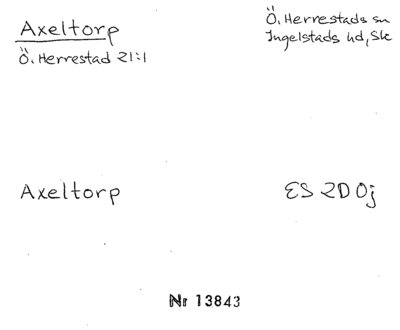 Axeltorp
Ö. Herrestad 21:1
Ö. Herrestads sn
Ingelstads hd, Sk
Axeltorp
ES 2D 0j
Nr 13843